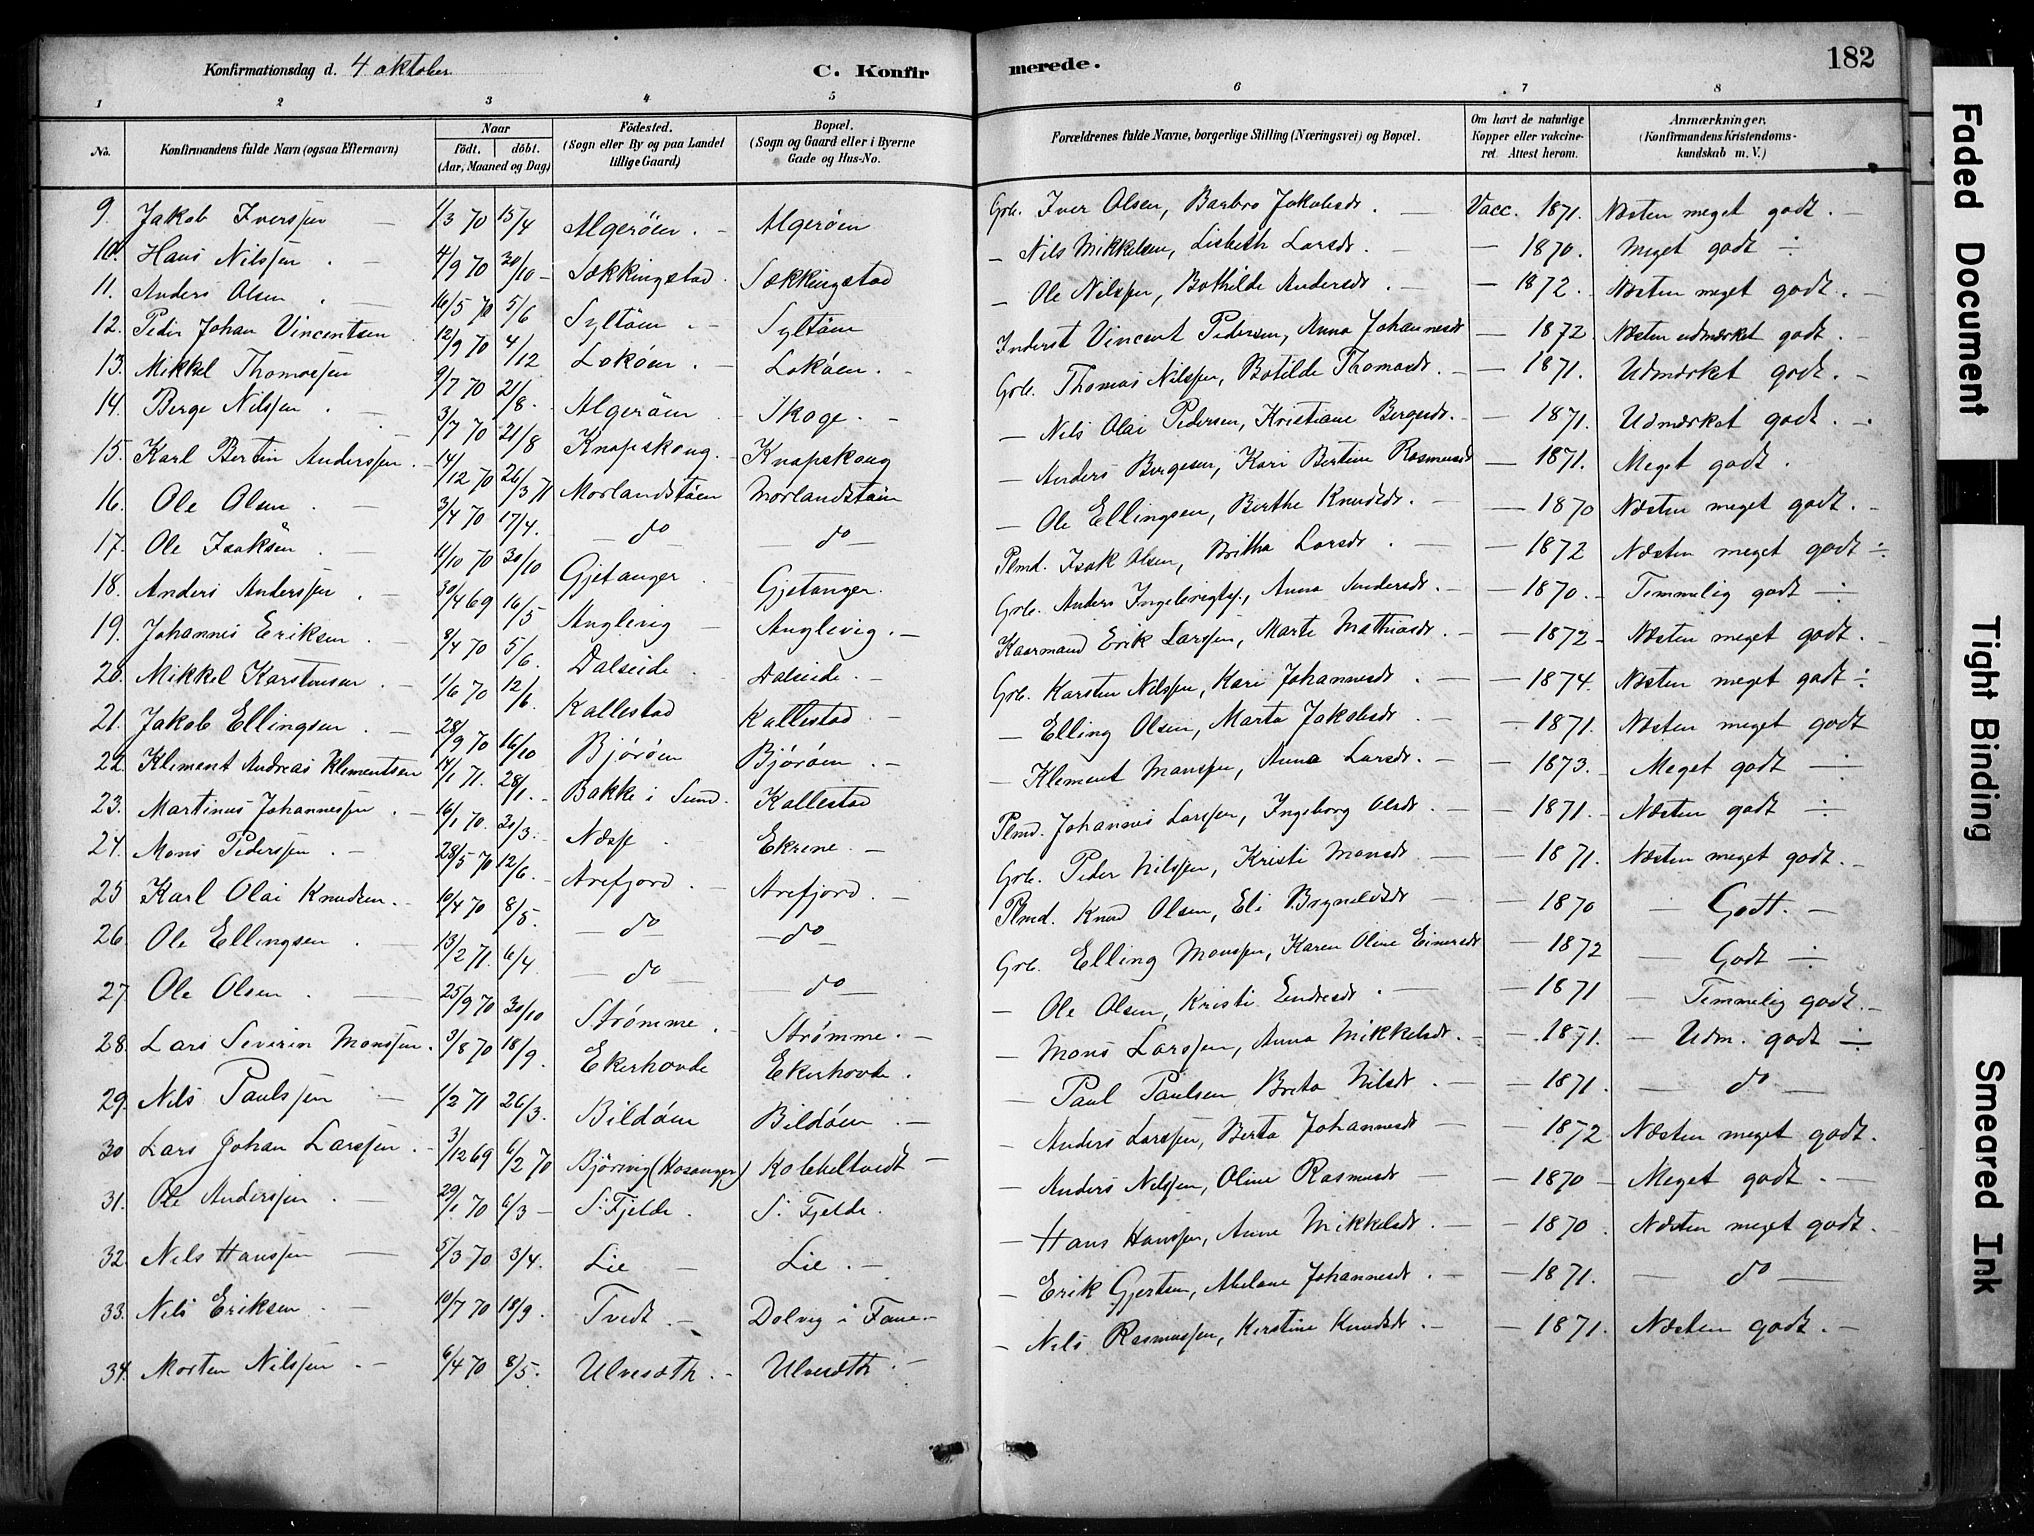 Konfirmationsdag d. 4 oktober C. Konfirmerede. 182
1 2 3 4 5 6 7 8
No. Konfirmandens fulde Navn (ogsaa Efternavn) Naar Födt. döbt. (Aar, Maaned og Dag) Födested. (Sogn eller By og paa Landet tillige Gaard) Bopæl. (Sogn og Gaard eller i Byerne Gade og Hus-No. Forældrenes fulde Navne, borgerlige Stilling (Næringsvei) og Bopæl. Om havt de naturlige Kopper eller vakcineret. Attest herom. Anmærkninger. (Konfirmandens Kristendomskundskab m. V.)
9. Jakob Iverssen 1/3 70 15/4 Algeröen. Algeröen Grb. Iver Olsen, Barbro Jakobsdr. Vacc. 1871. Næsten meget godt.
10. Hans Nilssen 4/9 70 30/10 Sækkingstad. Sækkingstad — Nils Mikkelsen, Lisbeth Larsdr. — 1870. Meget godt
11. Anders Olsen 16/5 70 5/6 Syltöen Syltöen — Ole Nilssen, Bothilde Andersdr. — 1872. Næsten meget godt.
12. Peder Johan Vincentsen 12/9 70 4/12 Loköen. Loköen. Inderst Vincent Pedersen, Anna Johannesdr — 1872. Næsten udmærket godt.
13. Mikkel Thomassen 9/7 70 21/8. Algeröen Skoge. Grb. Thomas Nilssen, Botilde Thomasdr. — 1871. Udmærket godt.
14. Berge Nilssen 3/7 70 21/8 Knapskoug. Knapskoug — Nils Olai Pedersen, Kristiane Bergesdr. — 1871. Udmærket godt.
15. Karl Bertin Anderssen. 14/12 70 26/3 71 Morlandstöen Morlandstöen — Anders Bergesen, Kari Bertine Rasmusdr — 1871. Meget godt.
16. Ole Olsen 3/4 70 17/4. do do — Ole Ellingsen, Berthe Knudsdr. — 1870 Næsten meget godt.
17. Ole Isaksen 11/10 70 30/10 Gjetanger Gjetanger. Plmd. Isak Olsen, Britha Larsdr. — 1872 Næsten meget godt
18. Anders Anderssen 30/4 69 16/5 Anglevig Anglevig. Grb. Anders Anna — 1870. Temmelig godt
19. Johannes Eriksen 8/4 70 5/6. Dalseide Dalseide. Kaarmand Erik Larssen, Marte Mathiasdr. — 1872 Næsten meget godt.
20. Mikkel Karstensen 1/6 70 12/6. Kallestad Kallestad. Grb. Karsten Nilssen, Kari Johannesdr — 1874. Næsten meget godt
21. Jakob Ellingsen 28/9 70 16/10 Björöen Björöen — Elling Olsen, Marta Jakobsdr. — 1871. Næsten meget godt
22 Klement Andreas Klementsen 14/1 71. 28/1. Bakke i Sund. Kallestad — Klement Monssen, Anna Larsdr. — 1873. Meget godt
23. Martinus Johannessen 16/1 70. 20/3. Næsse Ekrene. Plmd. Johannes Larssen, Ingeborg Olsdr. — 1871. Næsten godt
24. Mons Pederssen 28/5 70 12/6. Arefjord. Arefjord. Grb. Peder Nilssen, Kristi Monsdr — 1871. Næsten meget godt.
25 Karl Olai Knudsen. 10/4 70 8/5. do do Plmd. Knud Olsen, Eli Brynildsdr — 1870 Godt.
26. Ole Ellingsen 13/2 71. 6/4. do do Grb. Elling Monssen, Karen Oline Einersdr — 1872 Godt
27. Ole Olsen 25/9 70 30/10 Strömme. Strömme. — Ole Olsen, Kristi Endresdr. — 1871 Temmelig godt.
28. Lars Severin Monssen. 3/8 70 18/9. Ekerhovde Ekerhovde. — Mons Larssen, Anna Mikkelsdr. — 1871. Udm. godt
29. Nils Paulssen 1/2 71 26/3. Bildöen Bildöen. — Paul Paulsen Brita Nilsdr. — 1871. do
30 Lars Johan Larssen. 3/12 69 6/2 70 Björing (Hosanger) Kolbeltvedt — Anders Larssen, Berta Johannesdr — 1872 Næsten meget godt.
31. Ole Anderssen 29/1 70 6/3 S. Fjelde. S. Fjelde. — Anders Nilssen, Oline Rasmusdr — 1870 Meget godt.
32. Nils Hanssen 5/3 70 3/4. Lie Lie. — Hans Hanssen, Anne Mikkelsdr. — 1870. Næsten meget godt.
33. Nils Eriksen 10/7 70 18/9. Tvedt Dolvig i Fane. — Erik Gjertsen, Johannesdr. — 1871. do
34. Morten Nilssen 6/4 70 8/5. Ulvesæth. Ulvesæth. — Nils Rasmussen, Kerstine Knudsdr. — 1871. Næsten godt.
Faded Document
Tight Binding
Smeared Ink